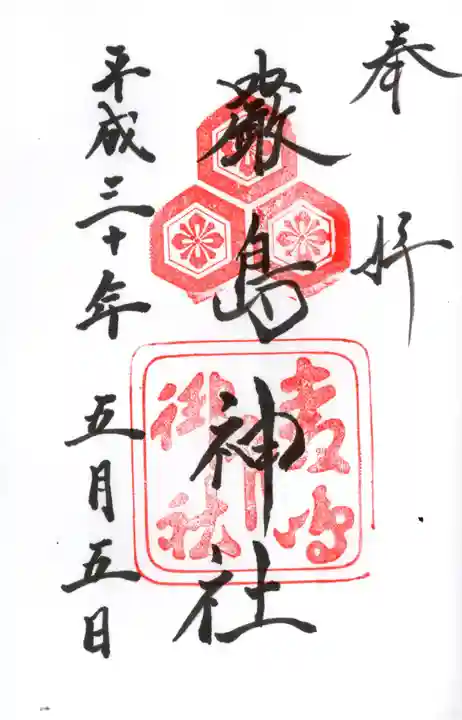 奉拝
厳島神社
平成三十年 五月五日